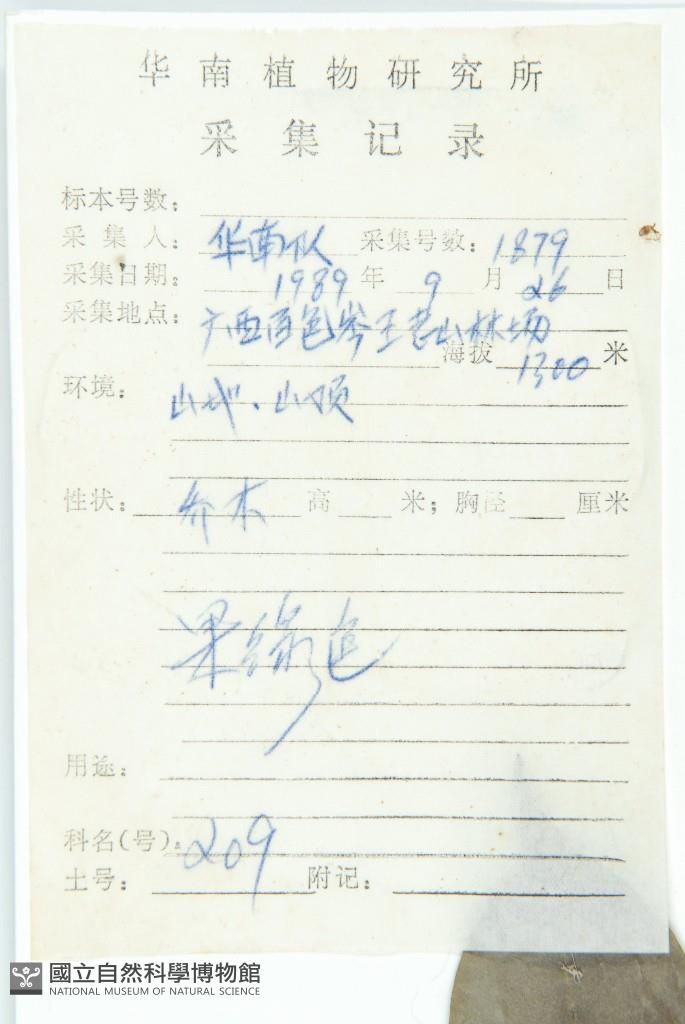 华南植物研究所
采集记录
标本号数：
采集人：华南队 采集号数：1879
采集日期：1989年9月26日
采集地点：广西百色岑王老山林场
海拔1300米
环境：山地．山顶
性状：乔木 高 米；胸径 厘米
果绿色
用途：
科名(号)：209
土号： 附记：
國立自然科學博物館
NATIONAL MUSEUM OF NATURAL SCIENCE